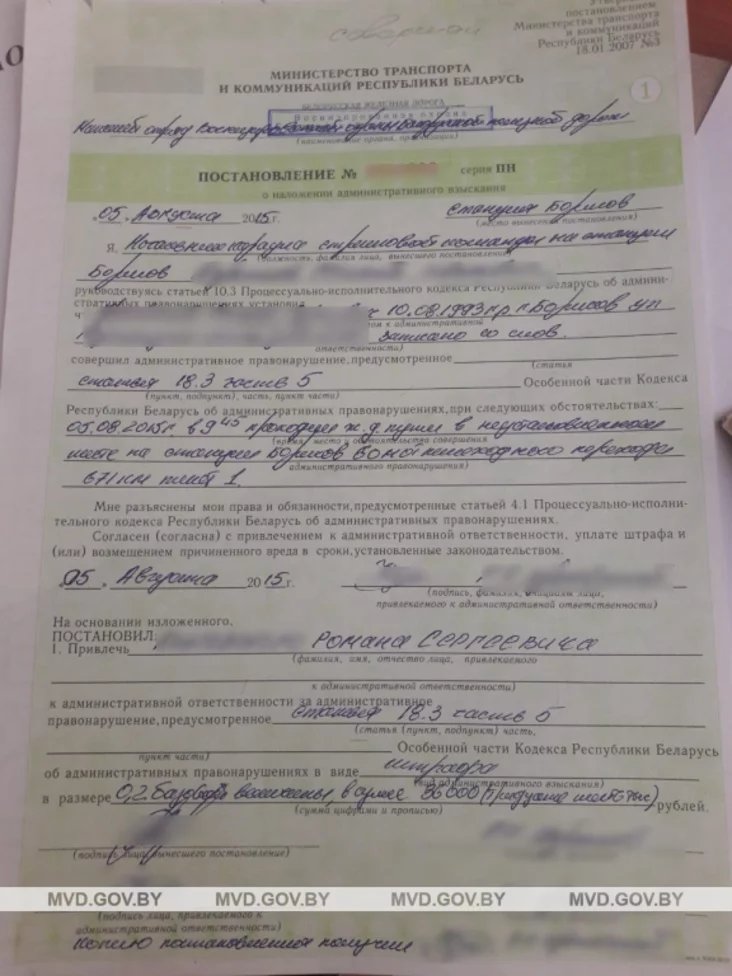 Утвер
постановлением
Министерства транспорта
и коммуникаций
Республики Беларусь
18.01.2007 №3
МИНИСТЕРСТВО ТРАНСПОРТА
И КОММУНИКАЦИЙ РЕСПУБЛИКИ БЕЛАРУСЬ
1
БЕЛОРУССКАЯ ЖЕЛЕЗНАЯ ДОРОГА
Военизированная охрана
отряд железной дороги
(наименование органа, организации)
ПОСТАНОВЛЕНИЕ № серия ПН
о наложении административного взыскания
"05" Августа 2015г. станция Борисов
(место вынесения постановления)
Я, стрелковой команды на станции
(должность, фамилия лица, вынесшего постановление)
Борисов
руководствуясь статьей 10.3 Процессуально-исполнительного кодекса Республики Беларусь об админи-
стративных правонарушениях, установил
10.08.1993 г.р. г. Борисов ул
к административной
записано со слов.
ответственности)
совершил административное правонарушение, предусмотренное
(статья
статьей 18.3 часть 5 Особенной части Кодекса
(пункт, подпункт), часть, пункт части)
Республики Беларусь об административных правонарушениях, при следующих обстоятельствах:
05.08.2015г. в 9 45 проходил ж.д. пути в неустановленном
(время, место и обстоятельства совершения
месте на станции Борисов вона пешеходного перехода
административного правонарушения)
671 км пикет 1.
Мне разъяснены мои права и обязанности, предусмотренные статьей 4.1 Процессуально-исполни-
тельного кодекса Республики Беларусь об административных правонарушениях.
Согласен (согласна) с привлечением к административной ответственности, уплате штрафа и
(или) возмещением причиненного вреда в сроки, установленные законодательством.
"05" Августа 2015г.
(подпись, фамилия, инициалы лица,
привлекаемого к административной ответственности)
На основании изложенного,
ПОСТАНОВИЛ:
1. Привлечь Романа Сергеевича
(фамилия, имя, отчество лица, привлекаемого
к административной ответственности)
к административной ответственности за административное
правонарушение, предусмотренное статьей 18.3 часть 5
(статья (пункт, подпункт) часть,
Особенной части Кодекса Республики Беларусь
пункт части)
об административных правонарушениях в виде штрафа
(вид административного взыскания)
в размере 0,2 базовой величины, в сумме 36000 (тридцать шесть тыс) рублей.
(сумма цифрами и прописью)
(подпись лица, вынесшего постановление)
MVD.GOV.BY MVD.GOV.BY MVD.GOV.BY MVD.GOV.BY
(подпись лица, привлекаемого к
административной ответственности)
Копию постановления получил